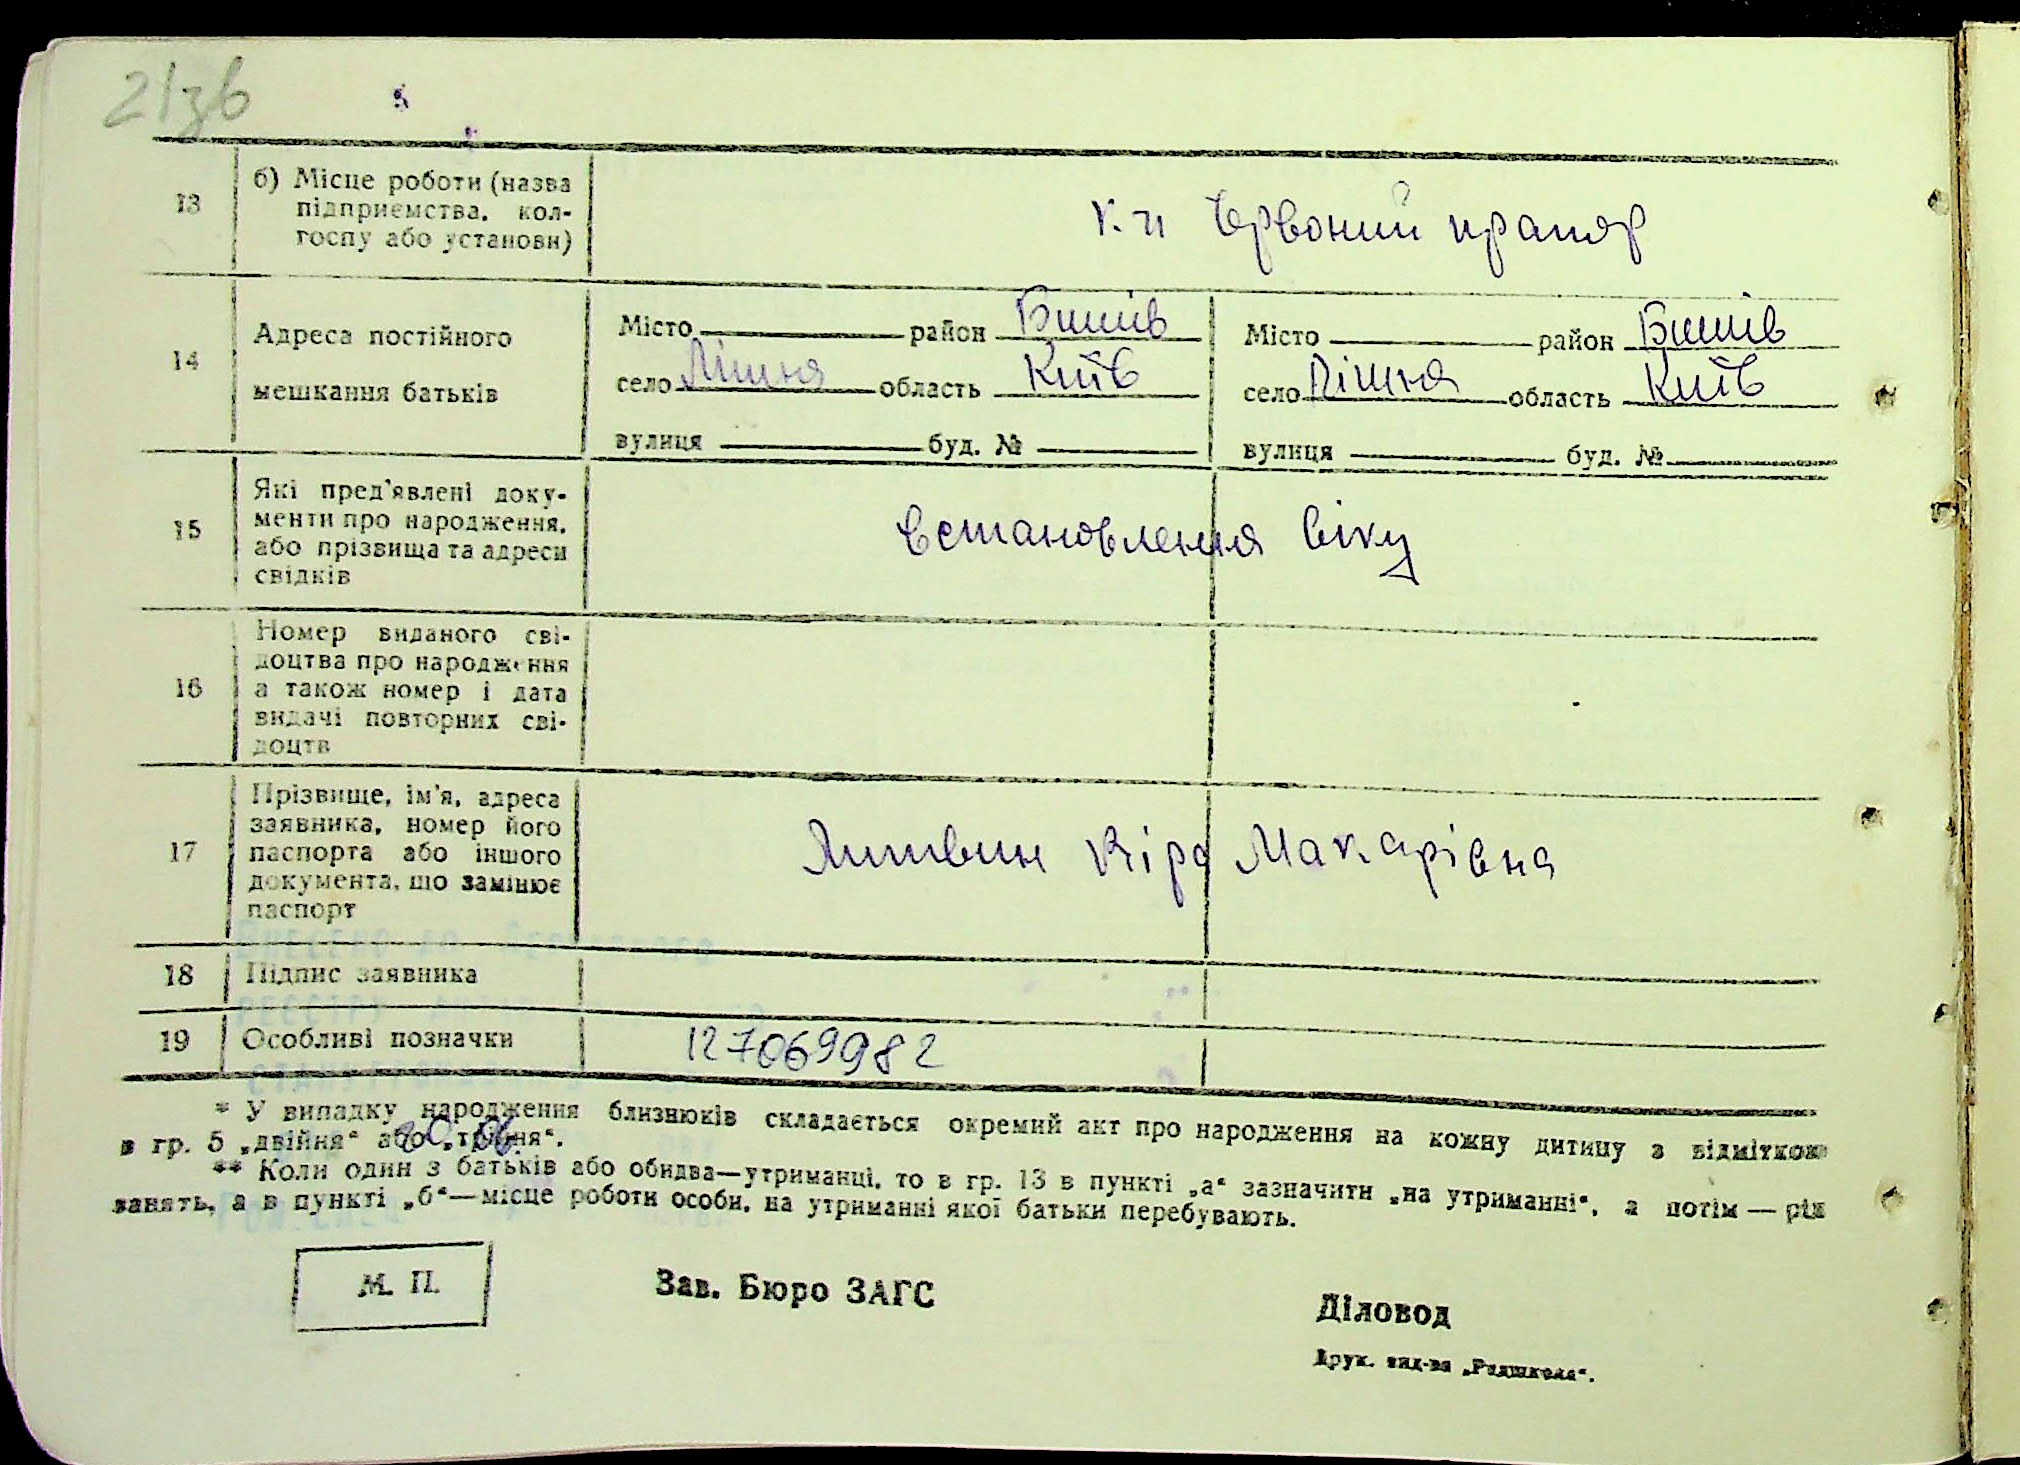 21зв
13
б) Місце роботи (назва
підприємства, кол-
госпу або установи)
к-п Червоний прапор
14
Адреса постійного
мешкання батьків
Місто район Бишів
село Лішня область Київ
вулиця буд. №
Місто район Бишів
село Лішня область Київ
вулиця буд. №
15
Які пред'явлені доку-
менти про народження,
або прізвища та адреси
свідків
Встановлення віку
16
Номер виданого сві-
доцтва про народження
а також номер і дата
видачі повторних сві-
доцтв
17
Прізвище, ім'я, адреса
заявника, номер його
паспорта або іншого
документа, що замінює
паспорт
Литвин Кіра Макарівна
18
Підпис заявника
19
Особливі позначки
127069982
* У випадку народження близнюків складається окремий акт про народження на кожну дитину з відміткою
в гр. 5 „двійня“ або „трійня“.
** Коли один з батьків або обидва—утриманці, то в гр. 13 в пункті „а“ зазначити „на утриманні“, а потім — рід
занять, а в пункті „б“—місце роботи особи, на утриманні якої батьки перебувають.
М. П.
Зав. Бюро ЗАГС
Діловод
Друк. вид-ва „Радшкола“.